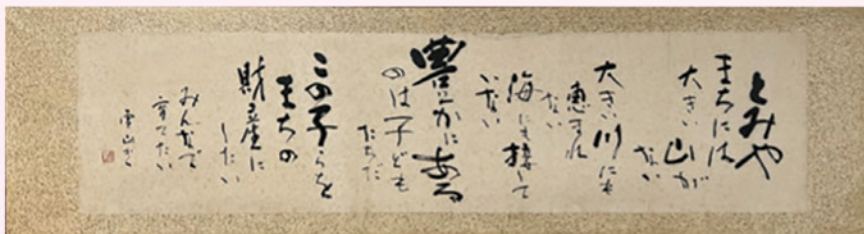 とみや
まちには
大きい山が
ない
大きい川にも
恵まれ
ない
海にも接して
いない
豊かにある
のは子ども
たちだ
この子らを
まちの
財産に
したい
みんなで
育てたい